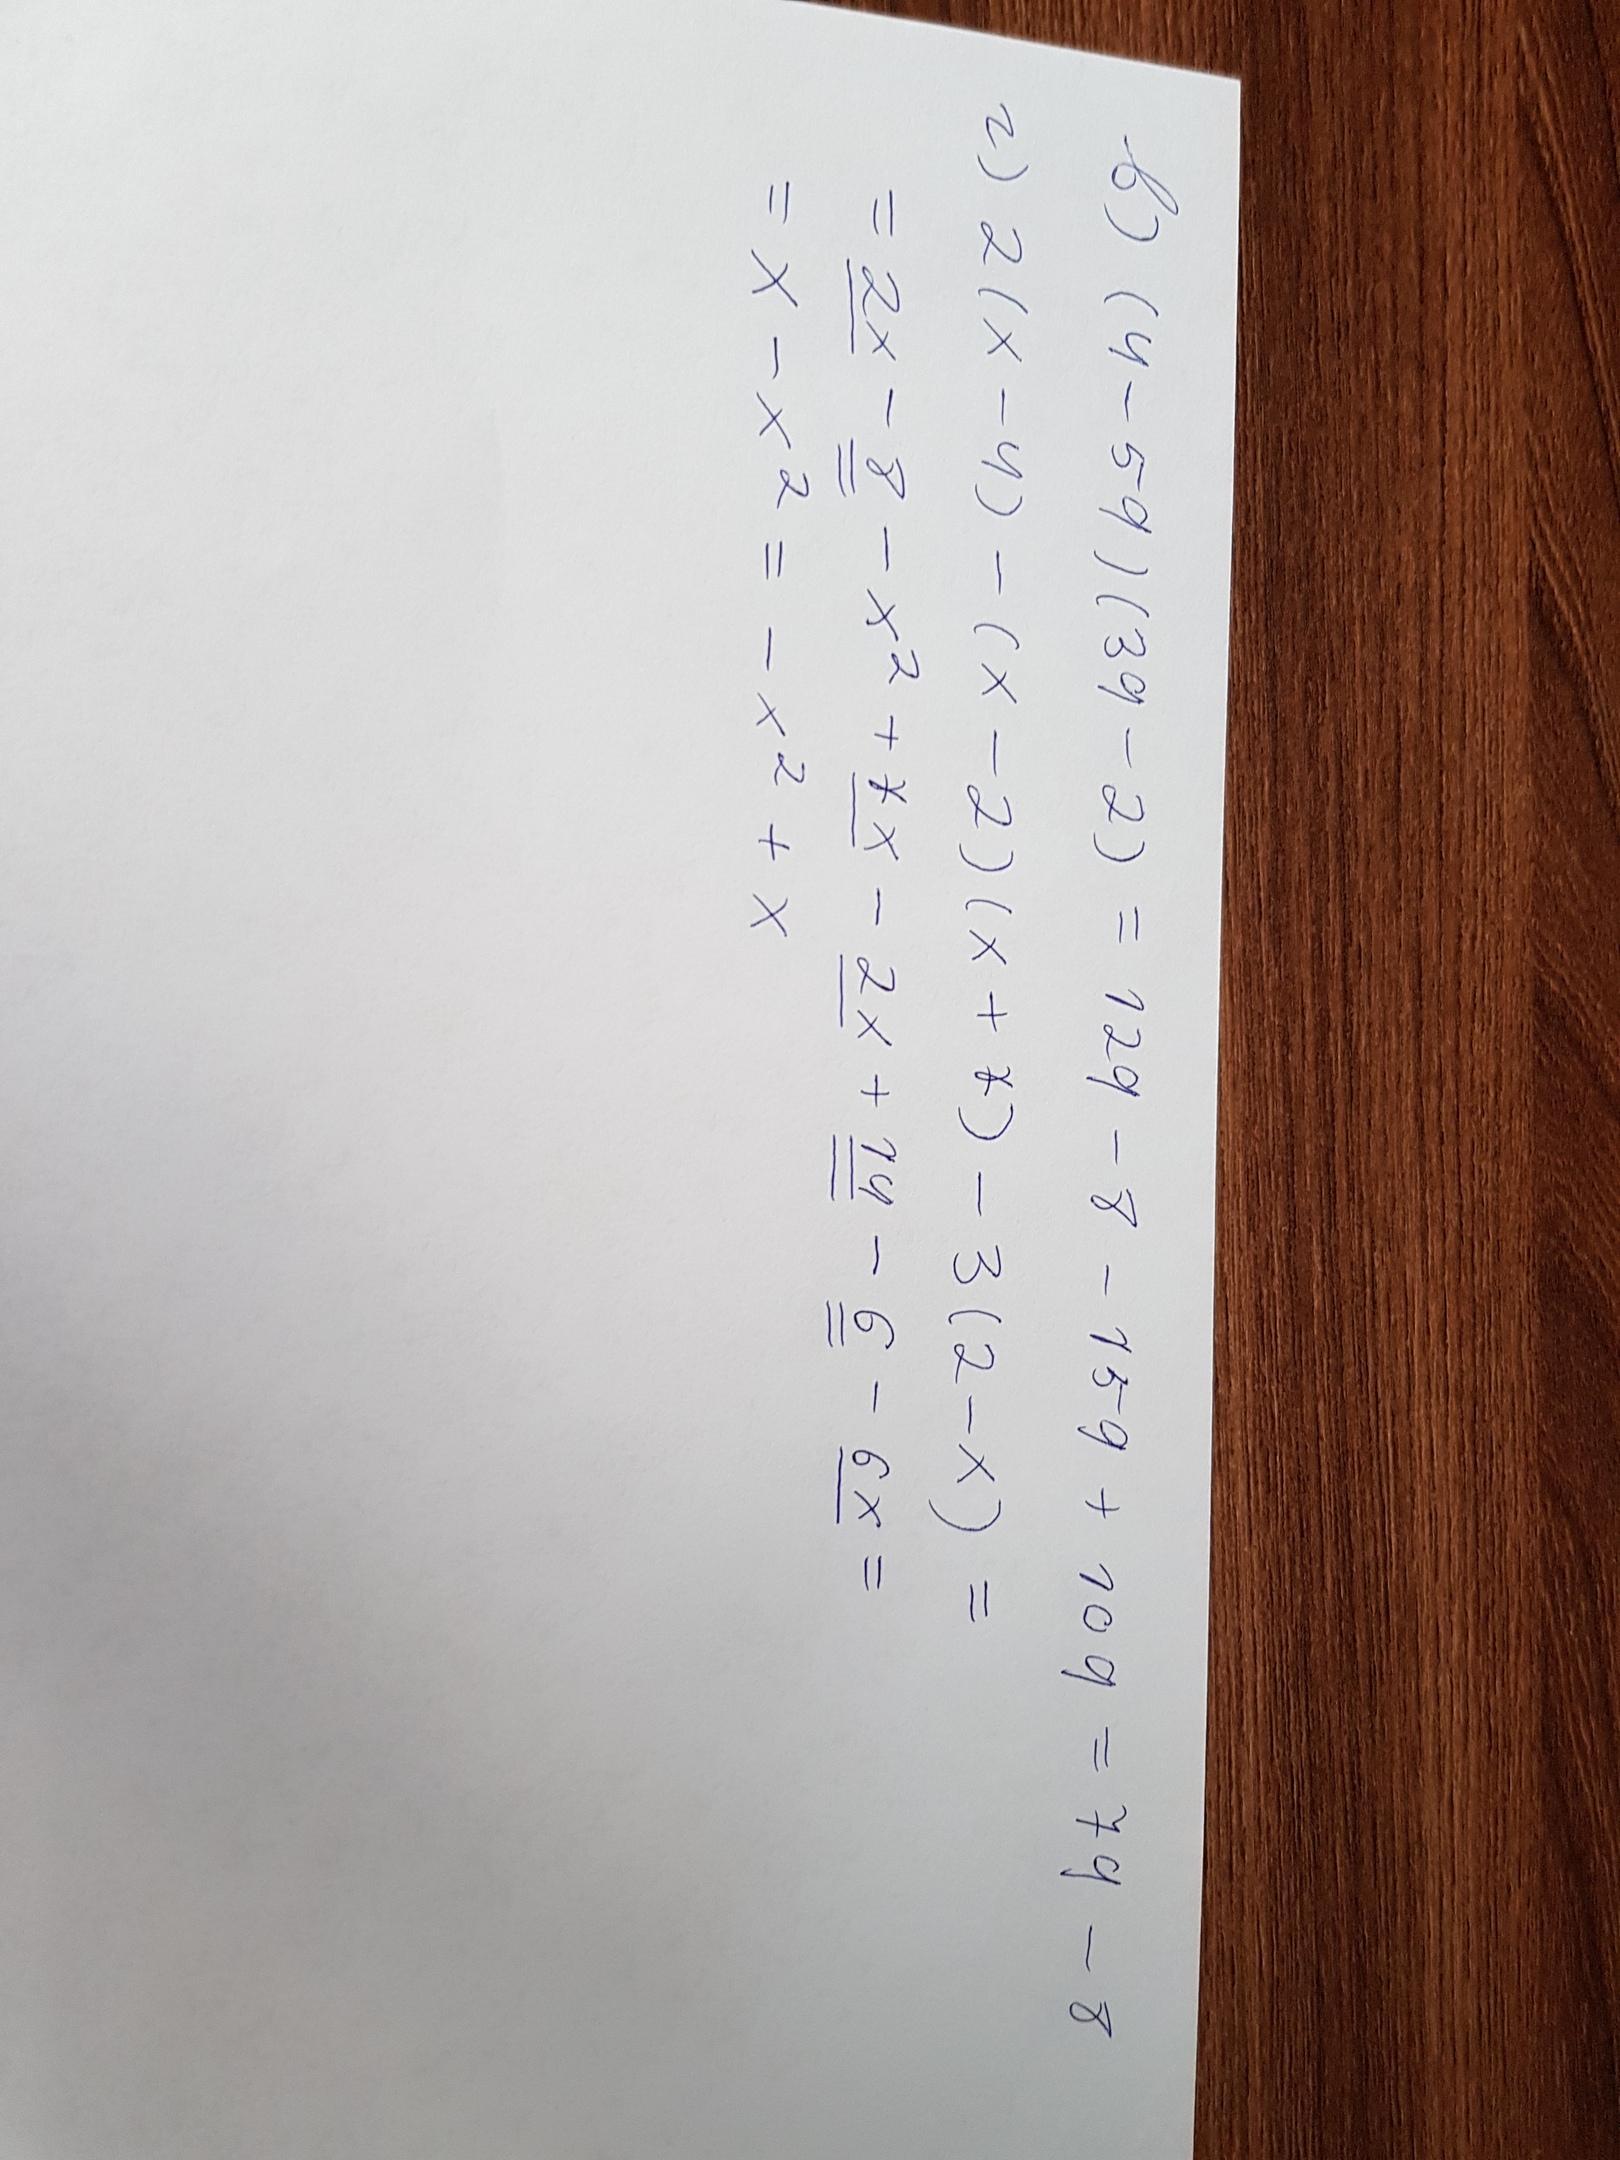 в) (4-5y)(3y-2) = 12y - 8 - 15y + 10y = 7y - 8
г) 2(x-4) - (x-2)(x+7) - 3(2-x) =
= 2x - 8 - x² + 7x - 2x + 14 - 6 - 6x =
= x - x² = - x² + x